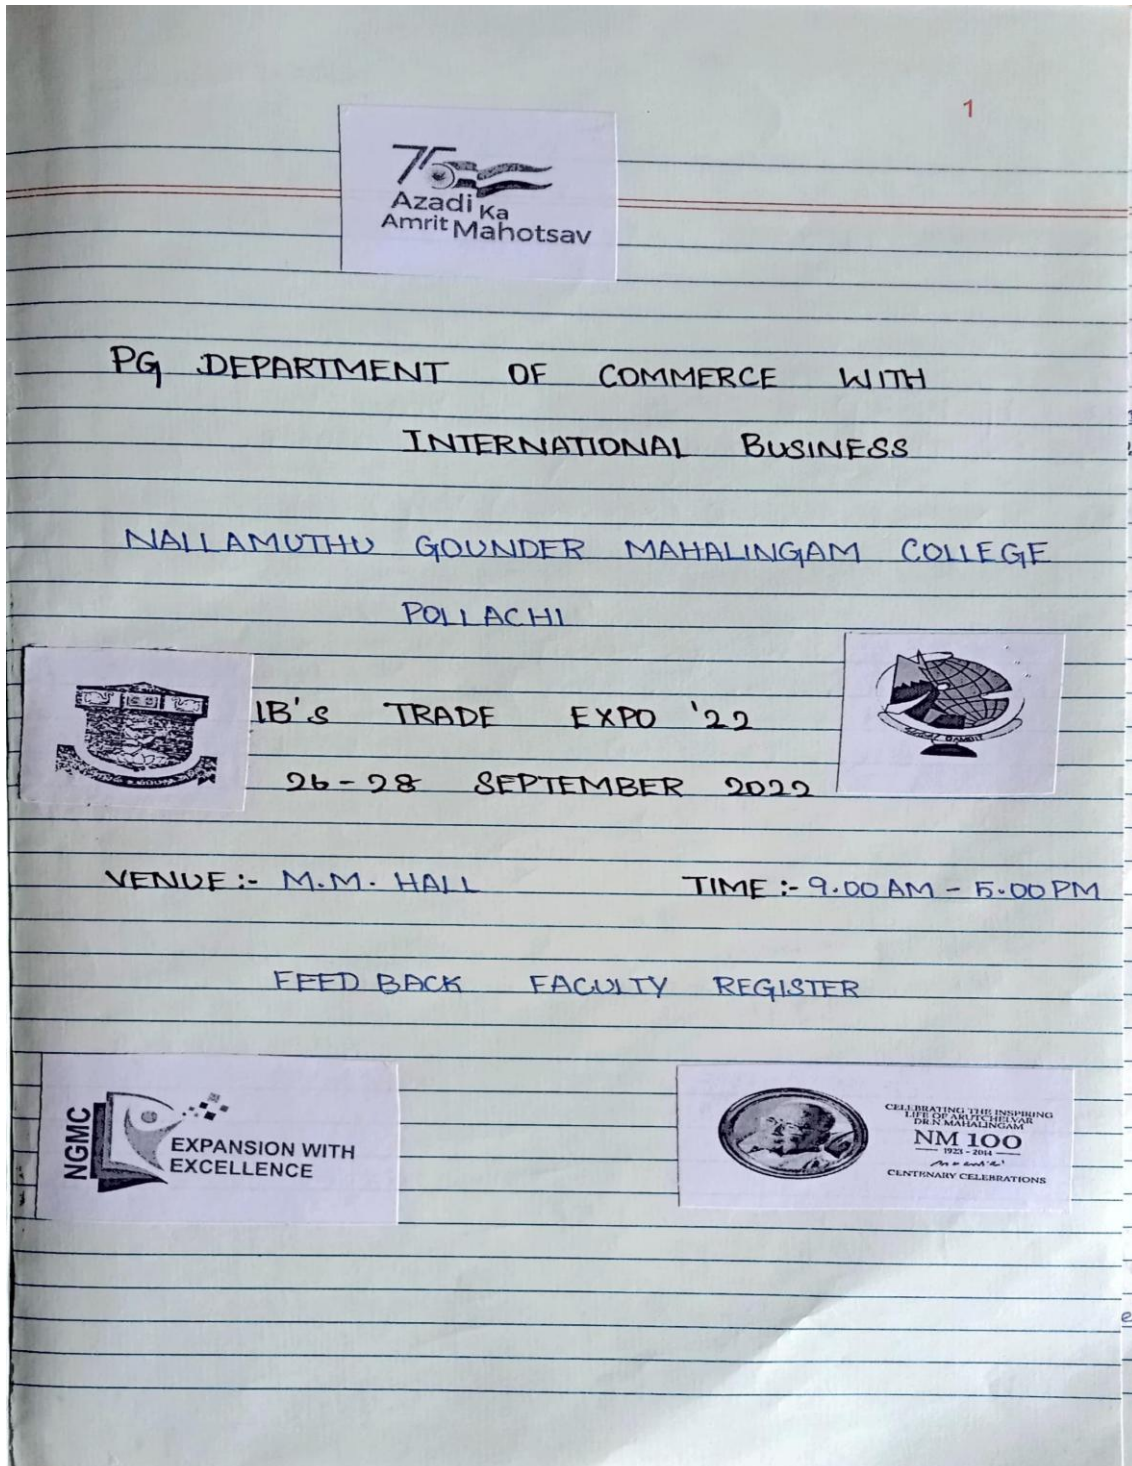 1
75
Azadi Ka
Amrit Mahotsav
PG DEPARTMENT OF COMMERCE WITH
INTERNATIONAL BUSINESS
NALLAMUTHU GOUNDER MAHALINGAM COLLEGE
POLLACHI
IB's TRADE EXPO '22
26-28 SEPTEMBER 2022
VENUE:- M.M. HALL TIME:- 9.00 AM - 5.00 PM
FEED BACK FACULTY REGISTER
NGMC
EXPANSION WITH
EXCELLENCE
CELEBRATING THE INSPIRING
LIFE OF ARUTCHELVAR
DR.N.MAHALINGAM
NM 100
1923 - 2014
CENTENARY CELEBRATIONS